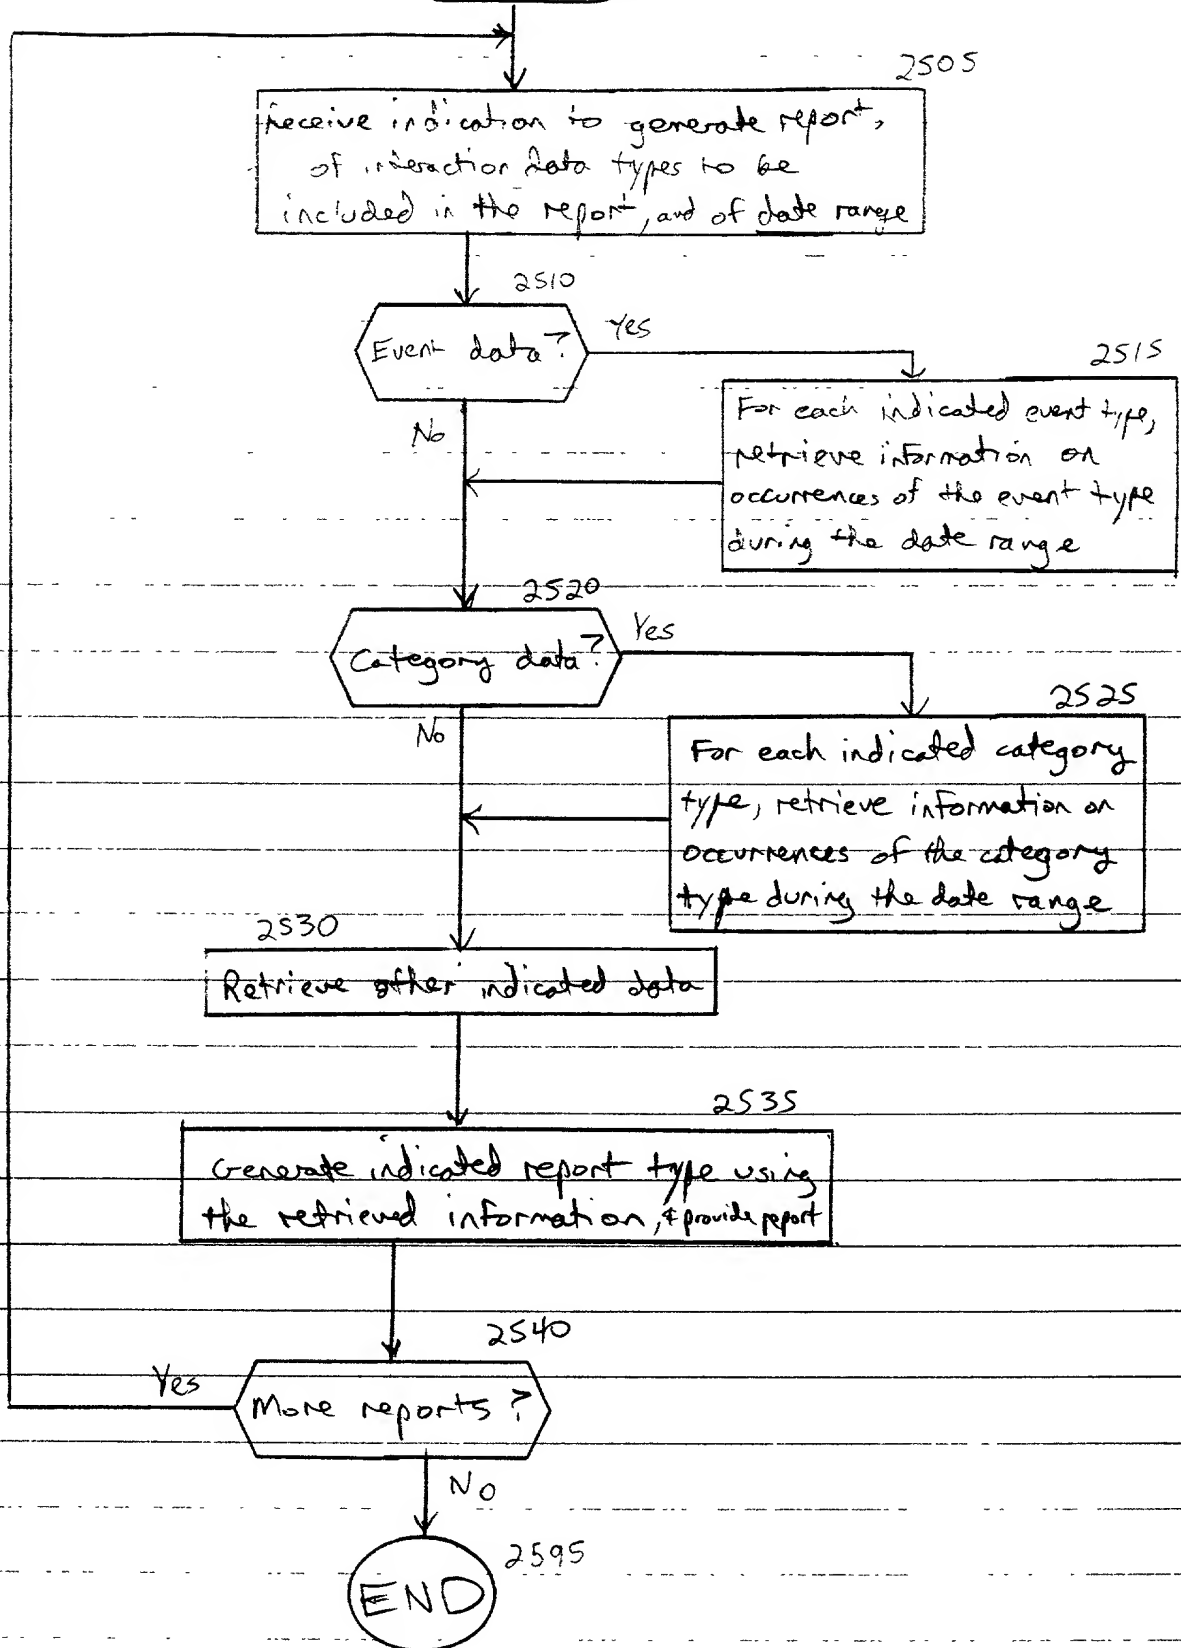 2505
Receive indication to generate report,
of interaction data types to be
included in the report, and of date range
2510
Event data?
Yes
2515
For each indicated event type,
retrieve information on
occurrences of the event type
during the date range
No
2520
Category data?
Yes
2525
For each indicated category
type, retrieve information on
occurrences of the category
type during the date range
No
2530
Retrieve other indicated data
2535
Generate indicated report type using
the retrieved information, & provide report
2540
More reports?
Yes
No
2595
END